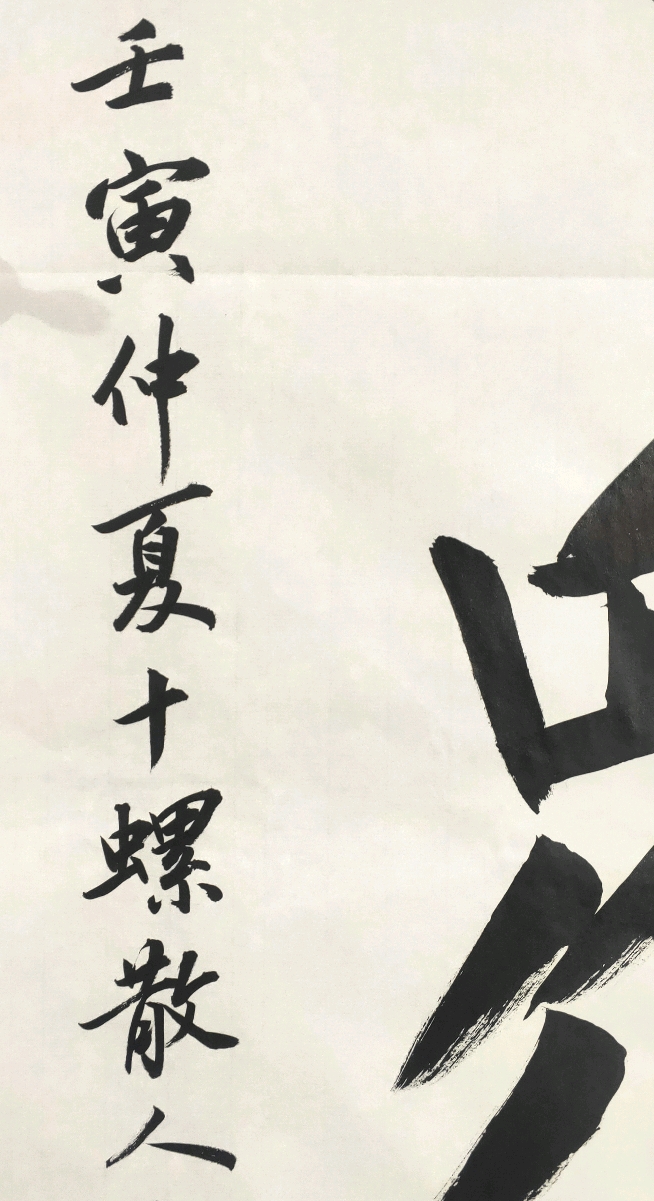 壬寅仲夏十螺散人